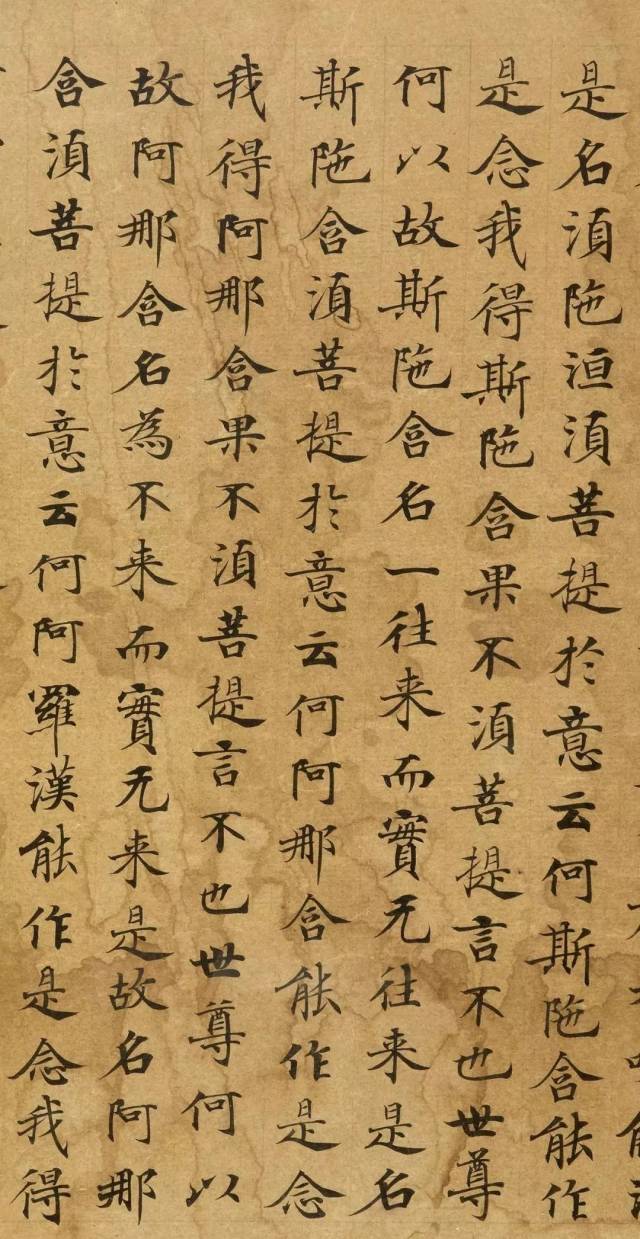 是名湏陁洹湏菩提於意云何斯陁含能作
是念我得斯陁含果不湏菩提言不也世尊
何以故斯陁含名一往来而實无往来是名
斯陁含湏菩提於意云何阿那含能作是念
我得阿那含果不湏菩提言不也世尊何以
故阿那含名為不来而實无来是故名阿那
含湏菩提於意云何阿羅漢能作是念我得